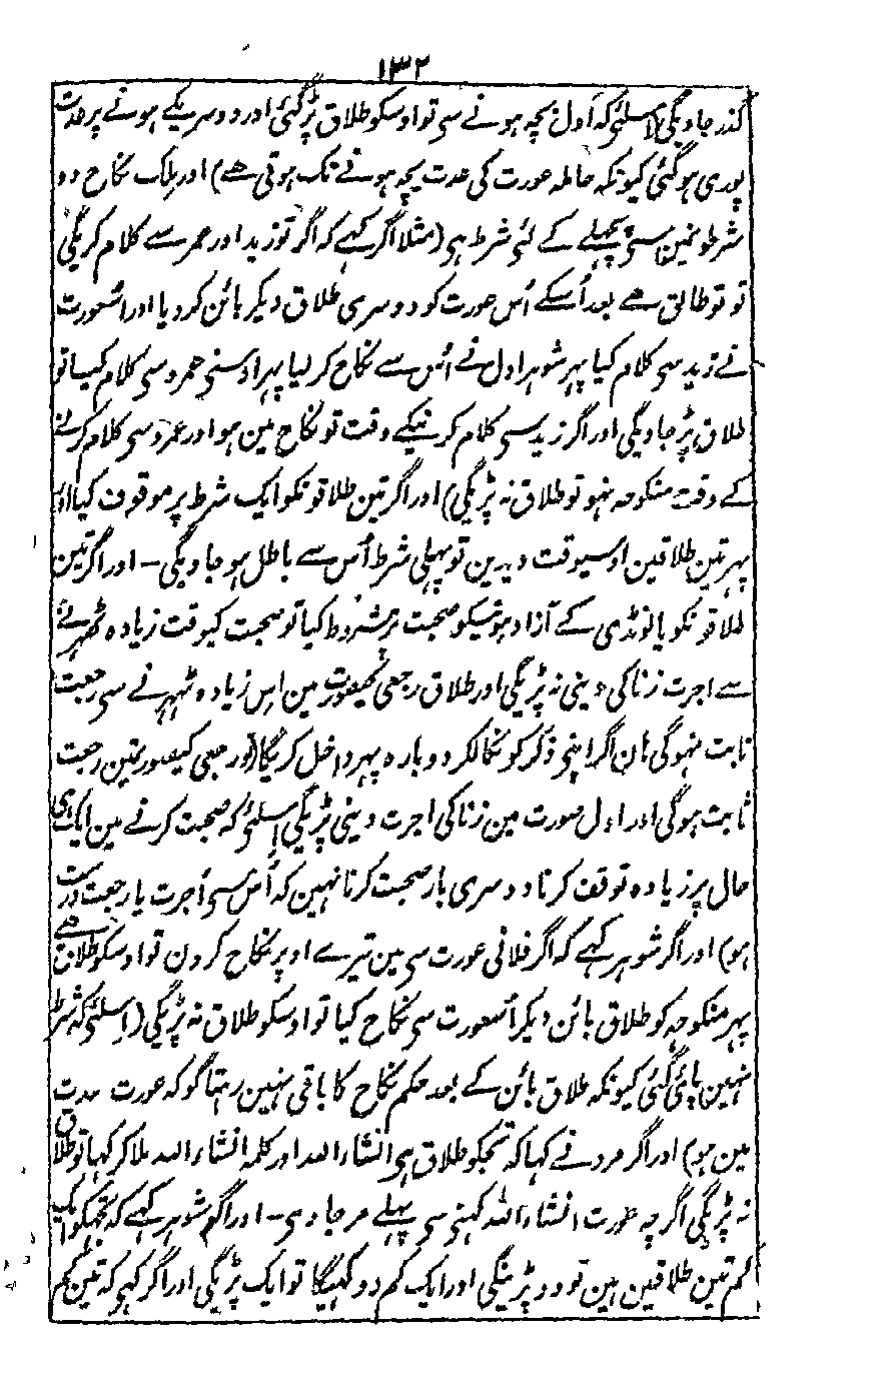 ۱۳۲
گذر جاویگی (اسلئے کہ اول بچہ ہونے سی تو اوسکو طلاق پڑ گئی اور دوسریکے ہونے پر عدت
پوری ہو گئی کیونکہ حاملہ عورت کی عدت بچہ ہونے تک ہوتی ہے) اور ملک نکاح دو
شرطونمین سی پچھلے کے لئی شرط ہی (مثلا اگر کہے کہ اگر تو زید اور عمر سے کلام کریگی
تو تو طالق ہے بعد اُسکے اُس عورت کو دوسری طلاق دیکر بائن کر دیا اور اُسعورت
نے زید سی کلام کیا پہر شوہر اول نے اُس سے نکاح کر لیا پہر اوسنی عمرو سی کلام کیا تو
طلاق پڑ جاویگی اور اگر زید سی کلام کرنیکے وقت تو نکاح مین ہو اور عمرو سی کلام کرنے
کے وقت منکوحہ نہو تو طلاق نہ پڑیگی) اور اگر تین طلاقونکو ایک شرط پر موقوف کیا اور
پہر تین طلاقین اوسیوقت دیدین تو پہلی شرط اُس سے باطل ہو جاویگی - اور اگر تین
طلاقونکو یا لونڈی کے آزاد ہونیکو صحبت پر مشروط کیا تو صحبت کیوقت زیادہ ٹھہرنے
سے اجرت زنا کی دینی نہ پڑیگی اور طلاق رجعی کیصورت مین اس زیادہ ٹھہرنے سی رجعت
ثابت نہوگی ہان اگر اپنی ذکر کو نکالکر دوبارہ پہر داخل کریگا (تو رجعی کیصورتمین رجعت
ثابت ہوگی اور اول صورت مین زنا کی اجرت دینی پڑیگی اسلئے کہ صحبت کرنے مین ایک ہی
حال پر زیادہ توقف کرنا دوسری بار صحبت کرنا نہین کہ اُس سی اُجرت یا رجعت درست
ہو) اور اگر شوہر کہے کہ اگر فلانی عورت سی مین تیرے اوپر نکاح کرون تو اوسکو طلاق ہے
پہر منکوحہ کو طلاق بائن دیکر اُسعورت سی نکاح کیا تو اوسکو طلاق نہ پڑیگی (اسلئے کہ شرط
نہین پائی گئی کیونکہ طلاق بائن کے بعد حکم نکاح کا باقی نہین رہتا گو کہ عورت عدت
مین ہو) اور اگر مرد نے کہا کہ تجکو طلاق ہی انشاءالله اور کلمہ انشاءالله ملا کر کہا تو طلاق
نہ پڑیگی اگرچہ عورت انشاءالله کہنی سی پہلے مر جاوی - اور اگر شوہر کہے کہ تجھکو ایک
کم تین طلاقین ہین تو دو پڑینگی اور ایک کم دو کہیگا تو ایک پڑیگی اور اگر کہی کہ تین کم